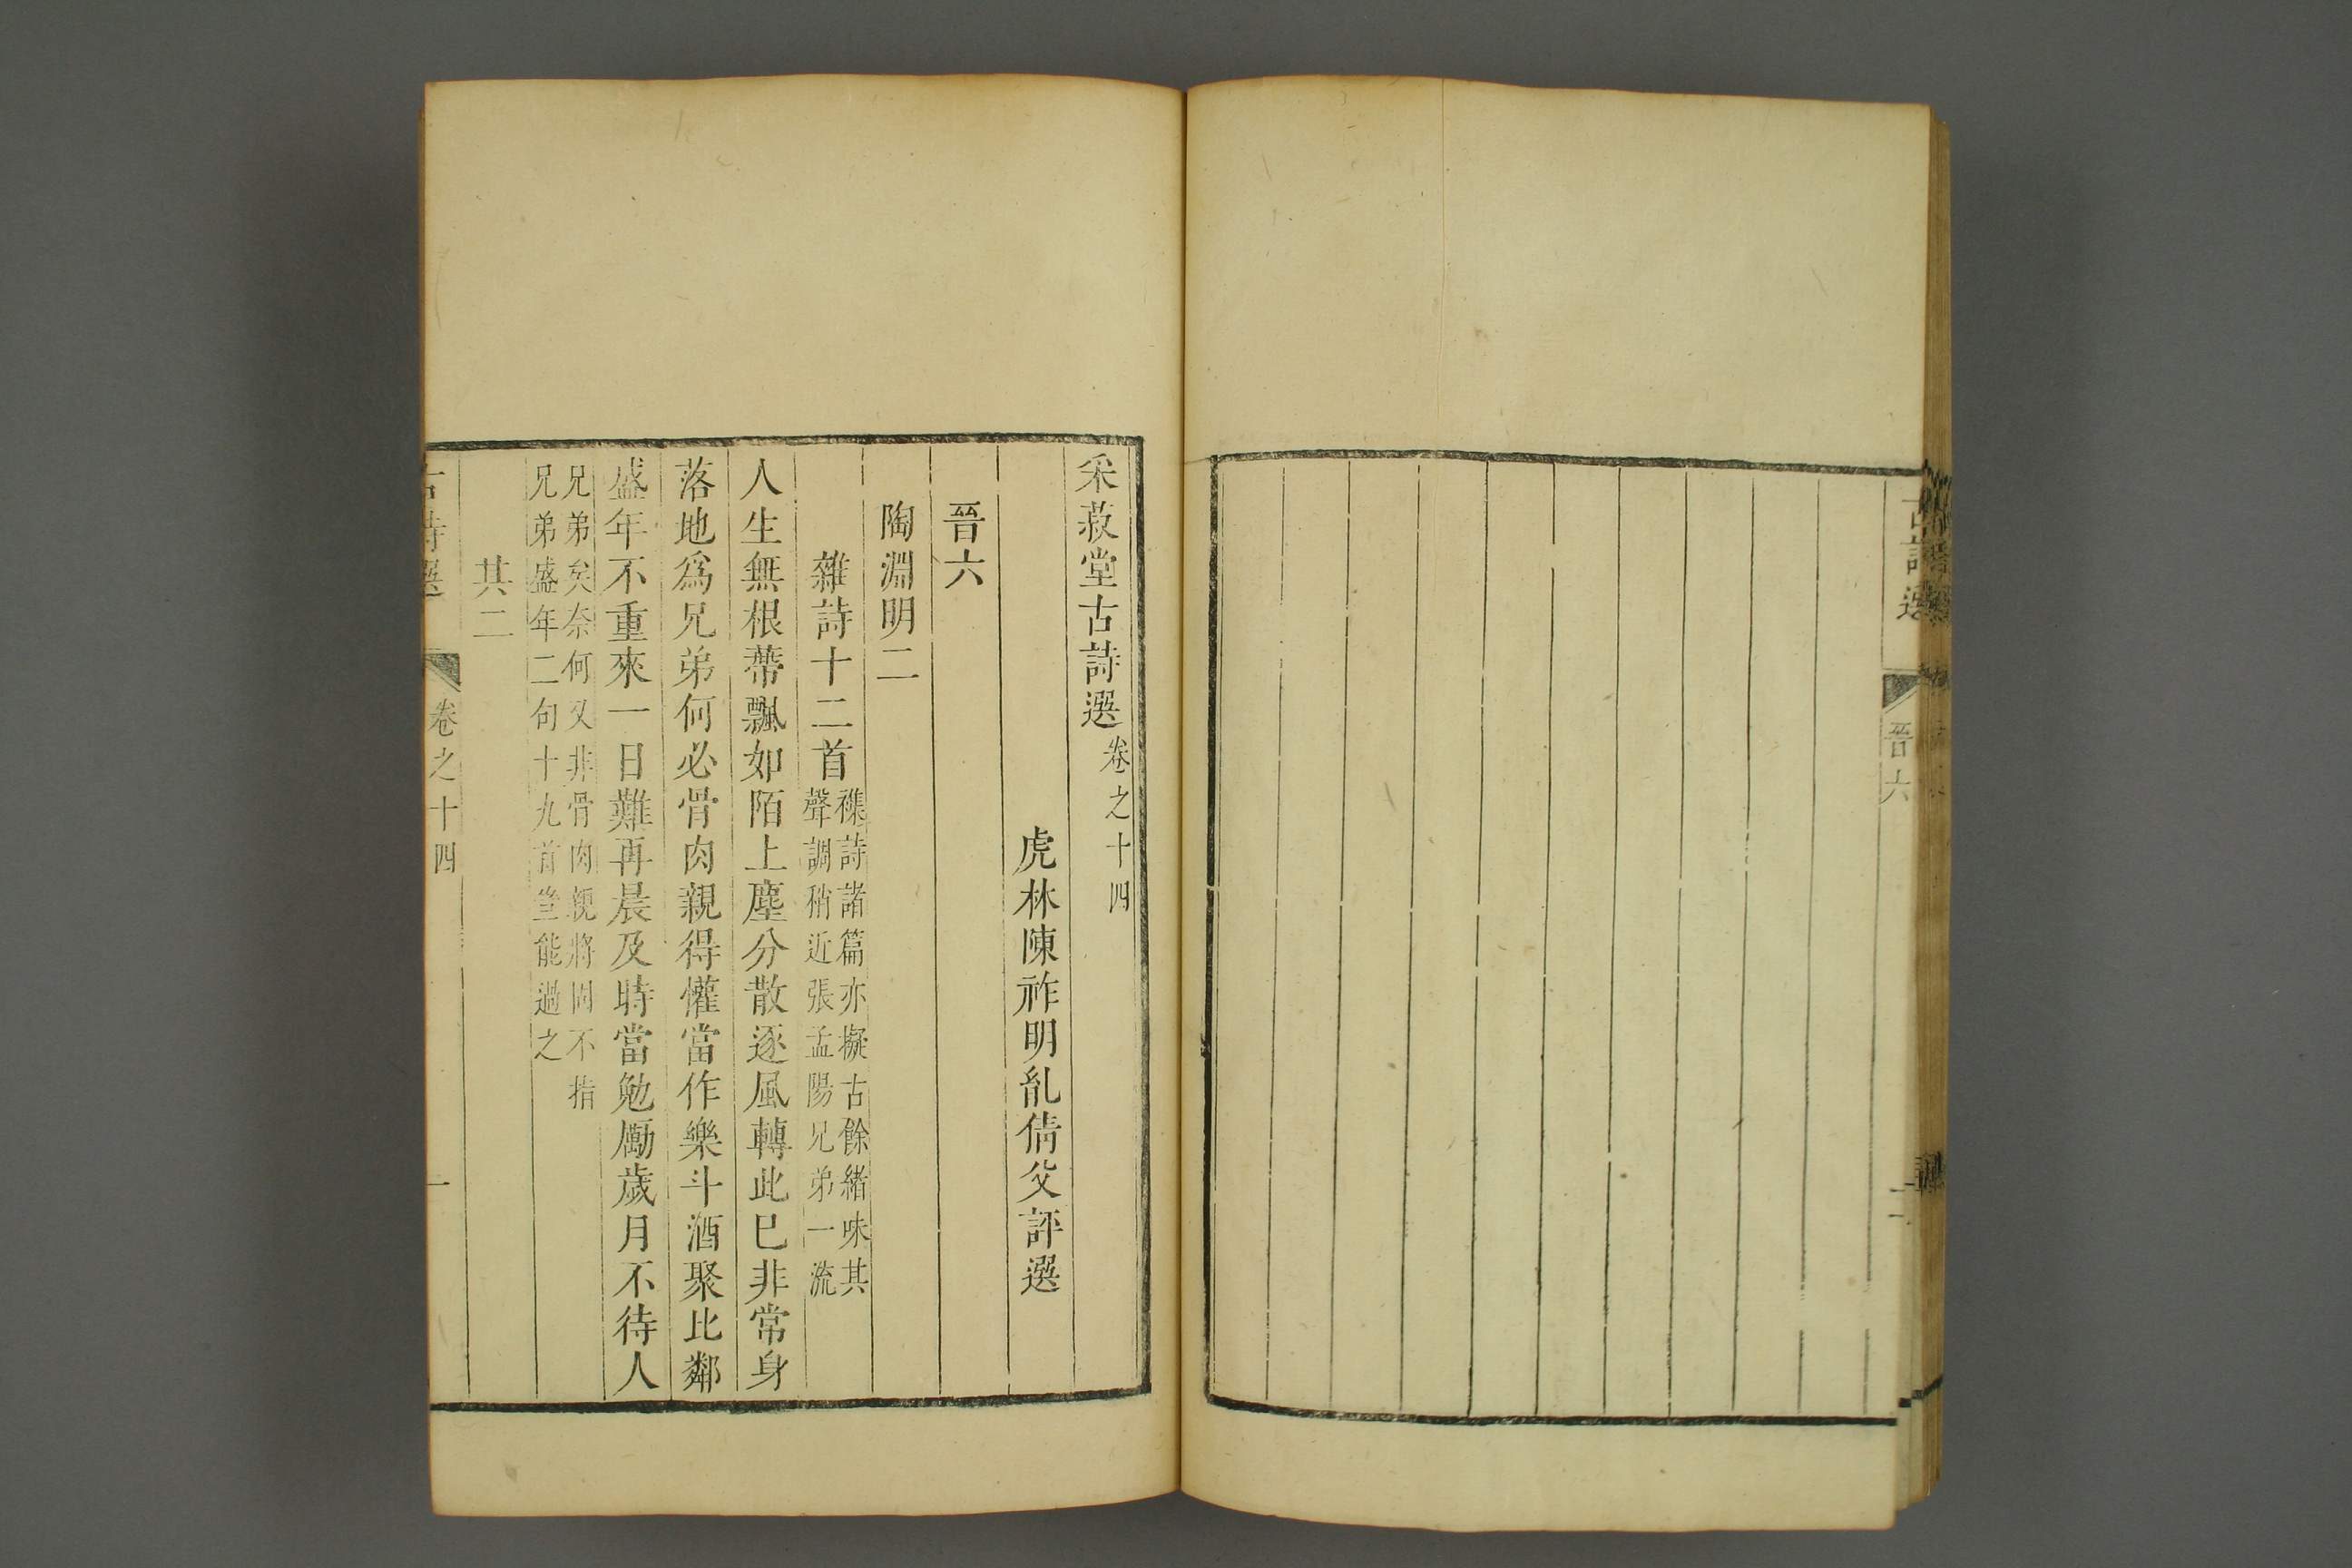 古詩選
晉六
采菽堂古詩選卷之十四
虎林陳祚明胤倩父評選
晉六
陶淵明二
雜詩十二首
襍詩諸篇亦擬古餘緒味其
聲調稍近張孟陽兄弟一流
人生無根蔕飄如陌上塵分散逐風轉此已非常身
落地爲兄弟何必骨肉親得懽當作樂斗酒聚比鄰
盛年不重來一日難再晨及時當勉勵歲月不待人
兄弟矣奈何又非骨肉親將固不指
兄弟盛年二句十九首豈能過之
其二
古詩選
卷之十四
一